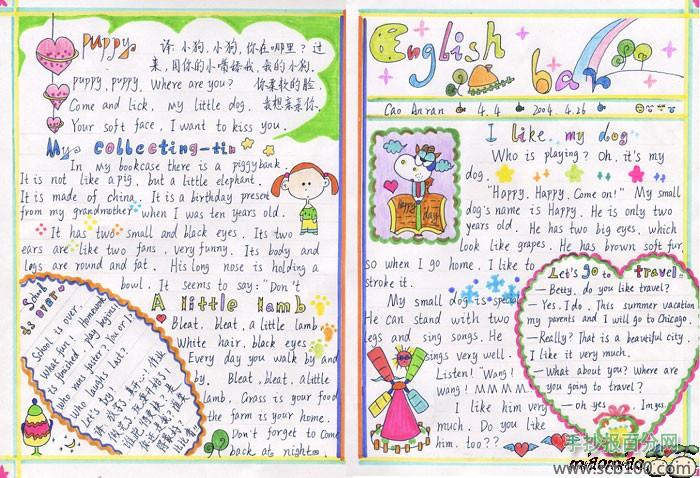 Puppy
译: 小狗, 小狗, 你在哪里? 过
来, 用你的小嘴舔我, 我的小狗.
puppy, puppy, Where are you? 你柔软的脸,
Come and lick, My little dog. 我想亲亲你.
Your soft face, I want to kiss you.
My collecting-tin
In my bookcase there is a piggybank
It is not like a pig, but a little elephant.
It is made of china. It is a birthday present
from my grandmother when I was ten years old.
It has two small and black eyes. Its two
ears are like two fans, very funny. Its body and
legs are round and fat. His long nose is holding a
bowl. It seems to say: "Don't
School is over
School is over.
what fun! Homework
is finished. play begins!
who runs faster? You or I?
Who laughs last?
Let's try
A little lamb
Bleat, bleat, a little lamb,
White hair, black eyes.
Every day you walk by and
by. Bleat, bleat, a little
lamb. Grass is your food
the farm is your home.
Don't forget to come
back at night.
English
Cao Anran 4.4 2004.4.26
I like my dog
Who is playing? Oh, it's my
dog.
"Happy, Happy, Come on!" My small
dog's name is Happy. He is only two
years old. He has two big eyes, which
look like grapes. He has brown soft fur,
so when I go home. I like to
stroke it.
My small dog is special
He can stand with two
legs and sing songs. He
sings very well.
Listen! "Wang!
Wang! MMMM!"
I like him very
much. Do you like
him, too??
happy day
Let's go to travel
— Betty, do you like travel?
— Yes. I do. This summer vacation
my parents and I will go to Chicago.
— Really? That is a beautiful city.
I like it very much.
— What about you? Where are
you going to travel?
— oh yes
手抄报百分网
www.scb100.com